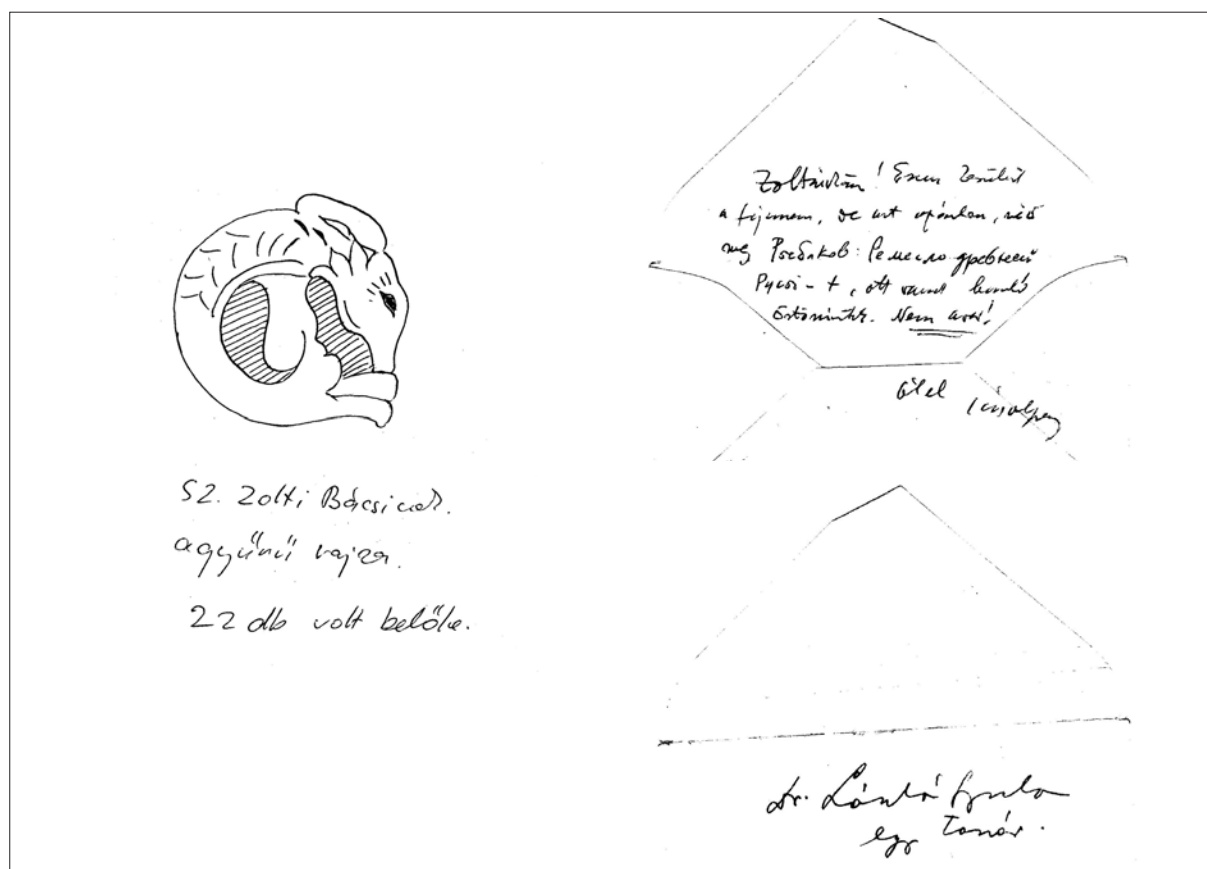 SZ. Zolti Bácsinak.
a gyűrű rajza.
22 db volt belőle.
! Ezen
a fejemen, de azt ajánlom, nézd
meg Рыбаков: Ремесло древней
Руси-t, ott vannak hasonló
öntőminták. Nem avar!
ölel
Dr. László Gyula
egy. tanár.